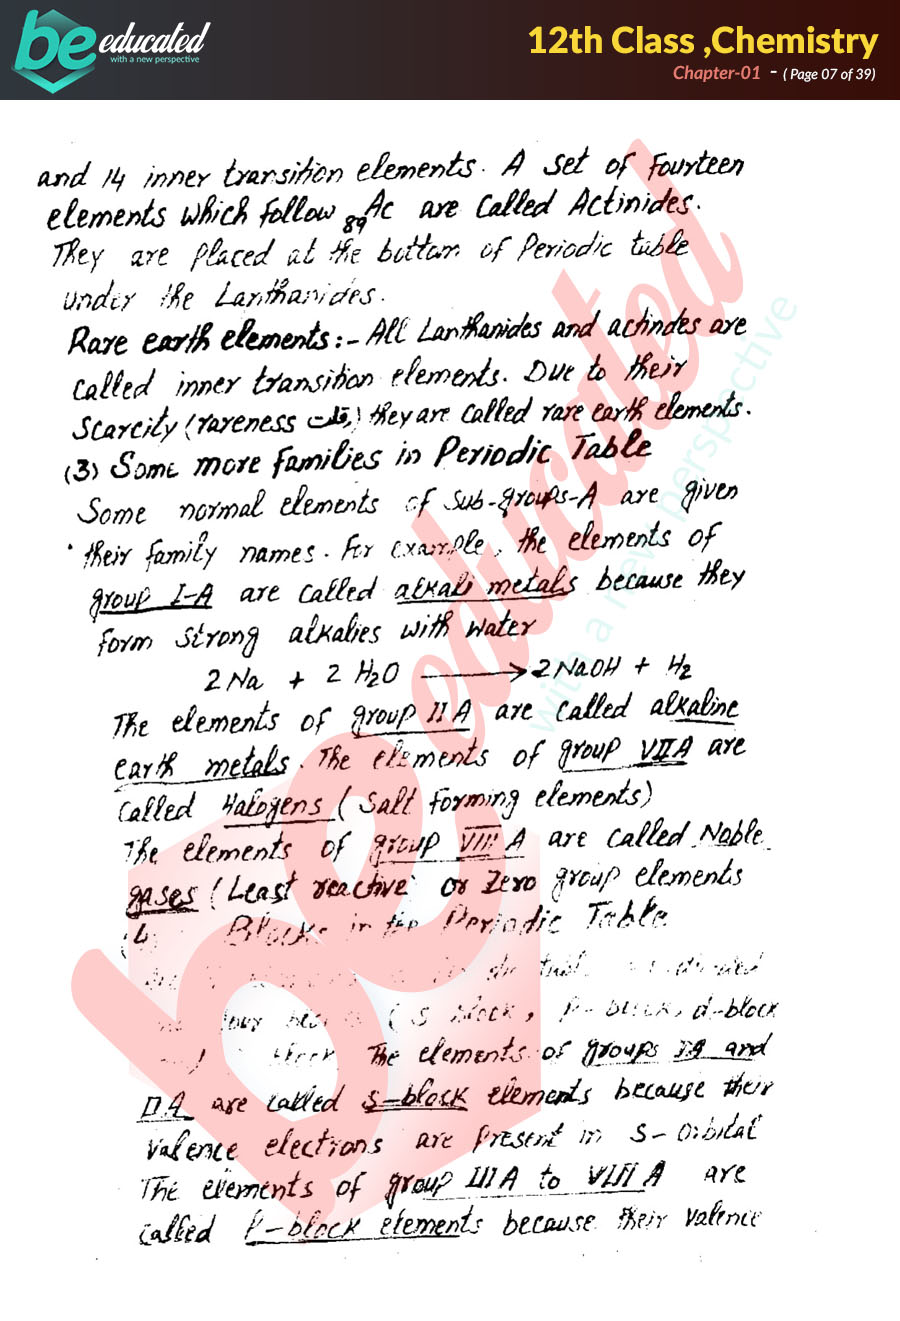 be educated
with a new perspective
12th Class ,Chemistry
Chapter-01 - ( Page 07 of 39)
and 14 inner transition elements. A set of Fourteen
elements which follow 89Ac are called Actinides.
They are placed at the bottom of Periodic table
under the Lanthanides.
Rare earth elements:- All Lanthanides and actindes are
called inner transition elements. Due to their
Scarcity (rareness قلت) they are called rare earth elements.
(3) Some more families in Periodic Table
Some normal elements of sub-groups-A are given
their family names. For example, the elements of
group I-A are called alkali metals because they
form strong alkalies with water
2Na + 2H2O ⟶ 2NaOH + H2
The elements of group IIA are called alkaline
earth metals. The elements of group VIIA are
called Halogens (Salt forming elements)
The elements of group VIII A are called Noble
gases (Least reactive or Zero group elements
(4 Blocks in the Periodic Table
four (s block, P-block, d-block
block The elements of groups IA and
IIA are called s-block elements because their
valence electrons are present in s-orbital
The elements of group IIIA to VIII A are
called P-block elements because their valence
be educated
with a new perspective